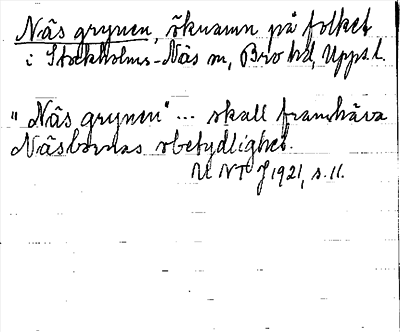 Näs grynen, öknamn på folket
i Stockholms-Näs sn, Bro hd, Uppl.
"Näs grynen" ... skall framhäva
Näsbornas obetydlighet.
UNT J 1921, s. 11.